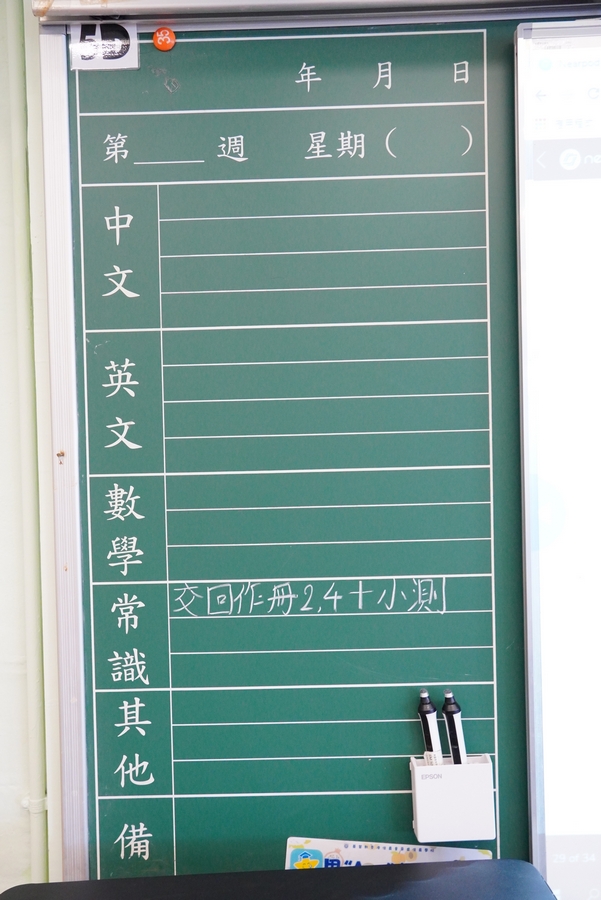 5D
35
年 月 日
第____週 星期（ ）
中文
英文
數學
常識 交回作冊2,4+小測
其他
EPSON
備
29 of 34